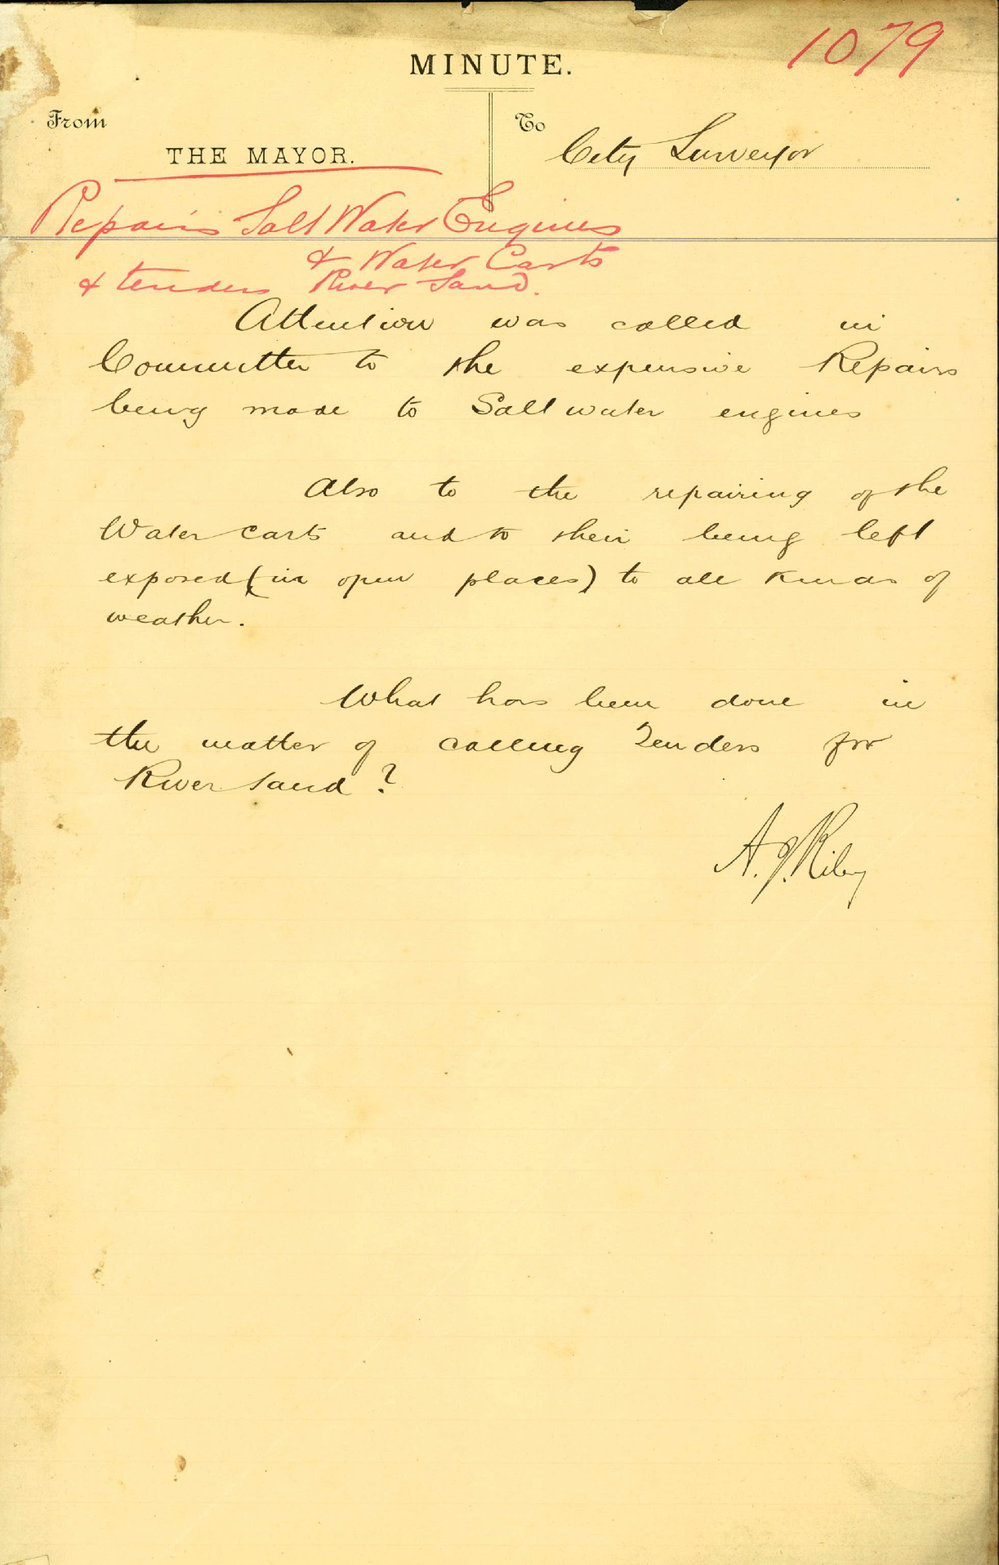 1079
MINUTE.
From
To
THE MAYOR.
City Surveyor
Repairs Salt Water Engines
& Water Carts
& tenders River Sand.
Attention was called in
Committee to the expensive Repairs
being made to Salt water engines
Also to the repairing of the
Water carts and to their being left
exposed (in open places) to all kinds of
weather.
What has been done in
the matter of calling Tenders for
River sand?
A. J. Riley